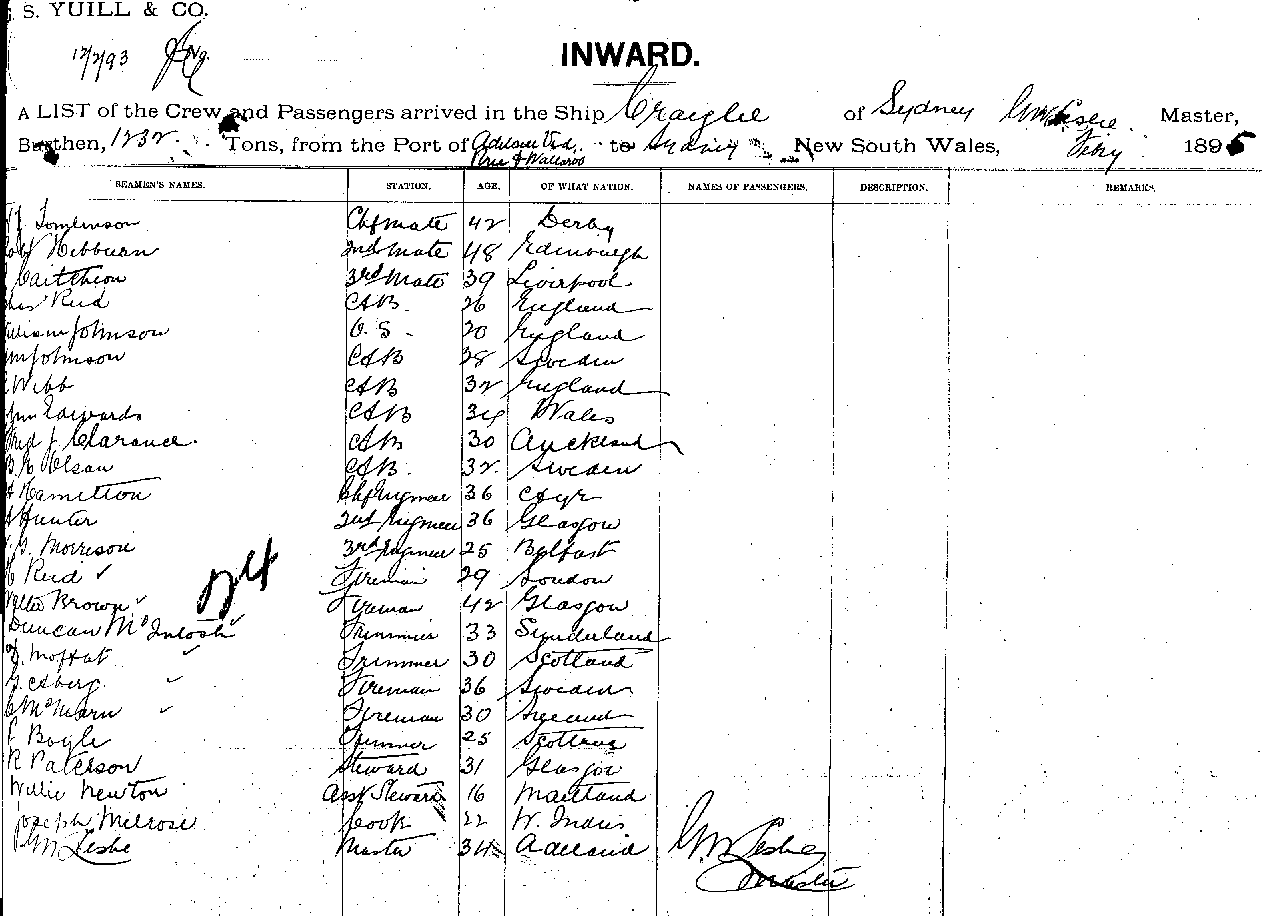 S. YUILL & CO.
17/2/93
INWARD.
A LIST of the Crew and Passengers arrived in the Ship Craiglee of Sydney GM Leslie Master,
Burthen, 1232 Tons, from the Port of Adelaide Pirie & Wallaroo to Sydney New South Wales, Feby 1895
SEAMEN'S NAMES. STATION. AGE. OF WHAT NATION. NAMES OF PASSENGERS. DESCRIPTION. REMARKS.
Tomlinson Chf Mate 42 Derby
Hebburn 2nd Mate 48 Edinburgh
Caitcheon 3rd Mate 39 Liverpool
Reid AB. 26 England
William Johnson O.S. 20 England
Johnson AB 38 Sweden
Webb AB 32 England
Edwards AB 34 Wales
Fred J. Clarance. AB 30 Auckland
Olsan AB. 32 Sweden
Hamilton Chf Engineer 36 Ayr
Hunter 2nd Engineer 36 Glasgow
Morrison 3rd Engineer 25 Belfast
Reid Fireman 29 London
Brown Fireman 42 Glasgow
Duncan McIntosh Trimmer 33 Sunderland
Moffat Trimmer 30 Scotland
Asberg. Fireman 36 Sweden
Fireman 30
Bogle Trimmer 25 Scotland
R Paterson Steward 31 Glasgow
Willie Newton Asst Steward 16 Maitland
Joseph Melrose Cook 22 W. Indies
GM Leslie Master 34 Adelaid GM Leslie
Master